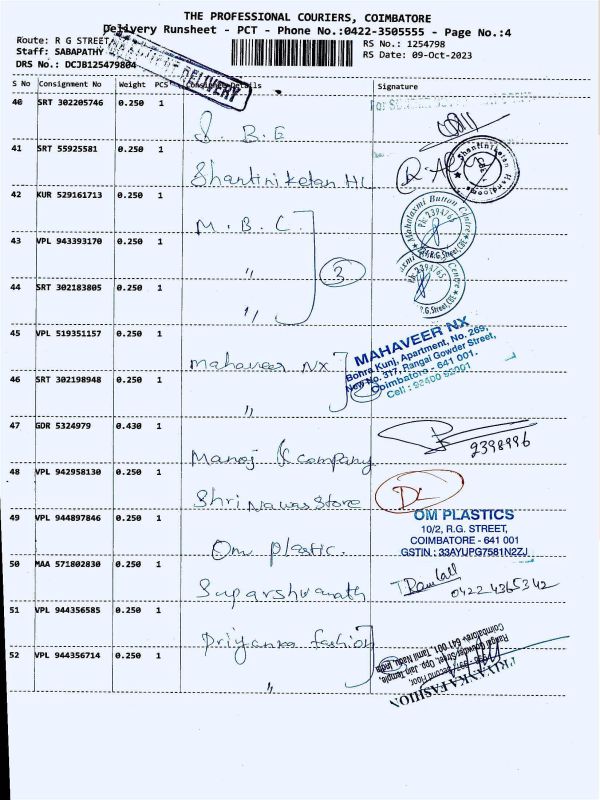 THE PROFESSIONAL COURIERS, COIMBATORE
Delivery Runsheet - PCT - Phone No.:0422-3505555 - Page No.:4
Route: R G STREET
RS No.: 1254798
Staff: SABAPATHY
RS Date: 09-Oct-2023
DRS No.: DCJB125479804
DELIVERY
S No Consignment No Weight PCS Consignee Details Signature
40 SRT 302205746 0.250 1
S. B. E
41 SRT 55925581 0.250 1
Shantiniketan HL
Shantiniketan Handlooms
42 KUR 529161713 0.250 1
M. B. C.
Mahalaxmi Button Centre
Ph: 2394765
R.G. Street, CBE
43 VPL 943393170 0.250 1
"
3
Centre
R.G. Street, CBE
44 SRT 302183805 0.250 1
"
45 VPL 519351157 0.250 1
Mahaveer NX
MAHAVEER NX
Bohra Kunj, Apartment, No. 269,
New No. 317, Rangai Gowder Street,
Coimbatore - 641 001.
46 SRT 302198948 0.250 1
"
47 GDR 5324979 0.430 1
Manoj K company
2398996
48 VPL 942958130 0.250 1
Shri Nawas Store
DL
49 VPL 944897846 0.250 1
Om plastic.
OM PLASTICS
10/2, R.G. STREET,
COIMBATORE - 641 001
GSTIN : 33AYUPG7581N2ZJ
50 MAA 571802830 0.250 1
Suparshvanath
0422 4365342
51 VPL 944356585 0.250 1
Priyanka fashion
52 VPL 944356714 0.250 1
"
PRIYANKA FASHION
Second Floor,
Rangai Gowder Street, Opp. Jain Temple,
Coimbatore- 641 001, Tamil Nadu, India